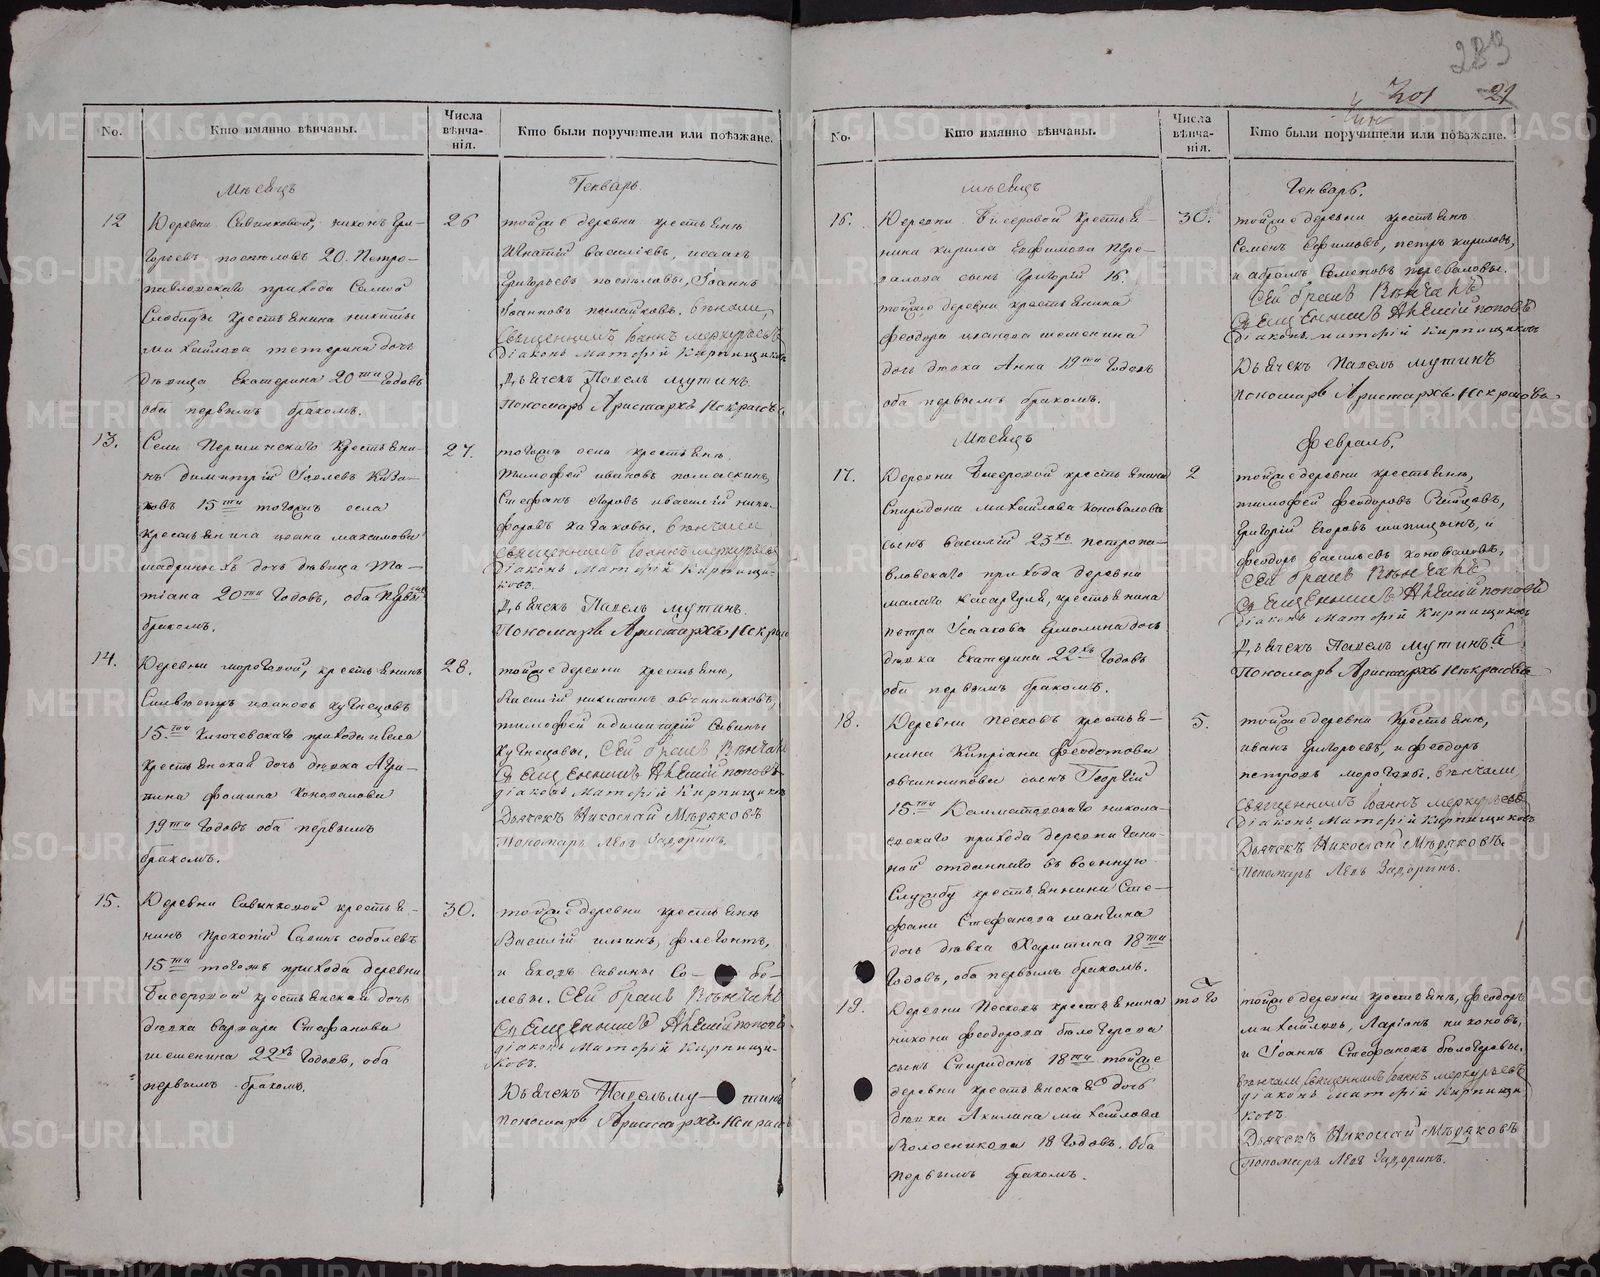 283
301
21
No.
Кто имянно вѣнчаны.
Числа вѣнча-
нія.
Кто были поручители или поѣзжане.
Мѣсяцъ
Генварь.
12
Деревни Савинковой, никонъ Гри-
горьевъ постѣловъ 20. Петро-
павловскаго прихода Самой
Слободы крестьянина никиты
михайлова тетерина дочь
дѣвица Екатерина 20 ти Годовъ
оба первымъ бракомъ.
26
тойже деревни крестьяне
Игнатій васильевъ, исаакъ
Григорьевъ постѣловы, Іоаннъ
Іоанновъ вѣнчали
Священникъ Іоаннъ меркурьевъ
Діаконъ Матѳій Кирпищиковъ
Дьячекъ Павелъ мутинъ.
Пономарь Аристархъ Некрасовъ
13.
Села Першинскаго крестьяни-
нъ димитрій Іовлевъ Каза-
ковъ 15 ти тогожъ села
крестьянина іоанна максимова
мадриныхъ дочь дѣвица Та-
тіана 20 ти Годовъ, оба первымъ
бракомъ.
27.
тогожъ села крестьяне
тимофей ивановъ
Стефанъ егоровъ ивасилій ники-
форовъ казаковы. вѣнчали
Священникъ Іоаннъ меркурьевъ
Діаконъ Матѳій Кирпищи-
ковъ.
Дьячекъ Павелъ мутинъ.
Пономарь Аристархъ Некрасовъ
14.
Деревни мороговой, крестьянинъ
Сильвестръ ивановъ кузнецовъ
15. ти Ключевскаго прихода исела
крестьянская дочь дѣвка Агри-
пина фомина Коновалова
19 ти Годовъ оба первымъ
бракомъ.
28.
тойже деревни крестьяне,
Василій никитинъ овчинниковъ,
тимофей идимитрій Савины
кузнецовы. Сей бракъ Вѣнчалъ
Священникъ Алексій поповъ
діаконъ Матѳій Кирпищиковъ
Дьячекъ Николай Мѣряковъ
Пономарь Левъ Задоринъ.
15.
Деревни Савинковой крестья-
нинъ Прокопій Савинъ соболевъ
15 ти тогожъ прихода деревни
Бисеровой крестьянская дочь
дѣвка варвара Стефанова
шешенина 22 хъ Годовъ, оба
первымъ бракомъ.
30.
тойже деревни крестьяне
Василій ильинъ, флегонтъ,
и яковъ савины Со- бо-
левы. Сей бракъ Вѣнчалъ
Священникъ Алексій поповъ
діаконъ Матѳій Кирпищи-
ковъ.
Дьячекъ Павелъ му- тинъ
пономарь Аристархъ Некрасовъ
No.
Кто имянно вѣнчаны.
Числа вѣнча-
нія.
Кто были поручители или поѣзжане.
мѣсяцъ
Генварь.
16.
Деревни Бисеровой крестья-
нина кирила Евфимова пере-
валова сынъ Григорій 16.
тойже деревни крестьянина
феодора иванова шешенина
дочь дѣвка Анна 19 ти Годовъ
оба первымъ бракомъ.
30.
тойже деревни крестьяне
Семенъ Ефимовъ, петръ кириловъ,
и афтомъ Семеновъ переваловы.
Сей бракъ Вѣнчалъ
Священникъ Алексій поповъ
діаконъ матѳій Кирпищиковъ
Дьячекъ Павелъ мутинъ
пономарь Аристархъ Некрасовъ
Мѣсяцъ
Февраль.
17.
Деревни Бисеровой крестьянина
Спиридона михайлова коновалова
сынъ василій 23 хъ петропа-
вловскаго прихода деревни
малаго касаргуля, крестьянина
петра Исаакова Ермолина дочь
дѣвка Екатерина 22 хъ Годовъ
оба первымъ бракомъ.
2
тойже деревни крестьяне,
тимофей феодоровъ
Григорій Егоровъ шипицынъ, и
феодоръ васильевъ коноваловъ,
Сей бракъ Вѣнчалъ
Священникъ Алексій поповъ
діаконъ Матѳій Кирпищиковъ
Дьячекъ Павелъ мутинъ
Пономарь Аристархъ Некрасовъ
18.
Деревни Песковъ крестья-
нина Кипріана Феодотова
овчинникова сынъ Георгій
15. ти Далматовскаго никола-
евскаго прихода деревни
ной отданнаго въ военную
Службу крестьянина Сте-
фана Стефанова
дочь дѣвка Харитина 18 ти
Годовъ, оба первымъ бракомъ.
5.
тойже деревни Крестьяне,
иванъ Григорьевъ, и феодоръ
петровъ вѣнчали
Священникъ Іоаннъ меркурьевъ
діаконъ Матѳій Кирпищиковъ
Дьячекъ Николай Мѣряковъ.
Пономарь Левъ Задоринъ.
19.
Деревни Песковъ крестьянина
никона феодорова
сынъ Спиридонъ 18 ти тойже
деревни крестьянская дочь
дѣвка Акилина михайлова
Колосникова 18 Годовъ. Оба
первымъ бракомъ.
того
тойже деревни крестьяне, феодоръ
михайловъ, Ларіонъ никоновъ,
и Іоаннъ Стефановъ
вѣнчали Священникъ Іоаннъ меркурьевъ
діаконъ Матѳій Кирпищи-
ковъ
Дьячекъ Николай Мѣряковъ
Пономарь Левъ Задоринъ.
METRIKI.GASO-URAL.RU